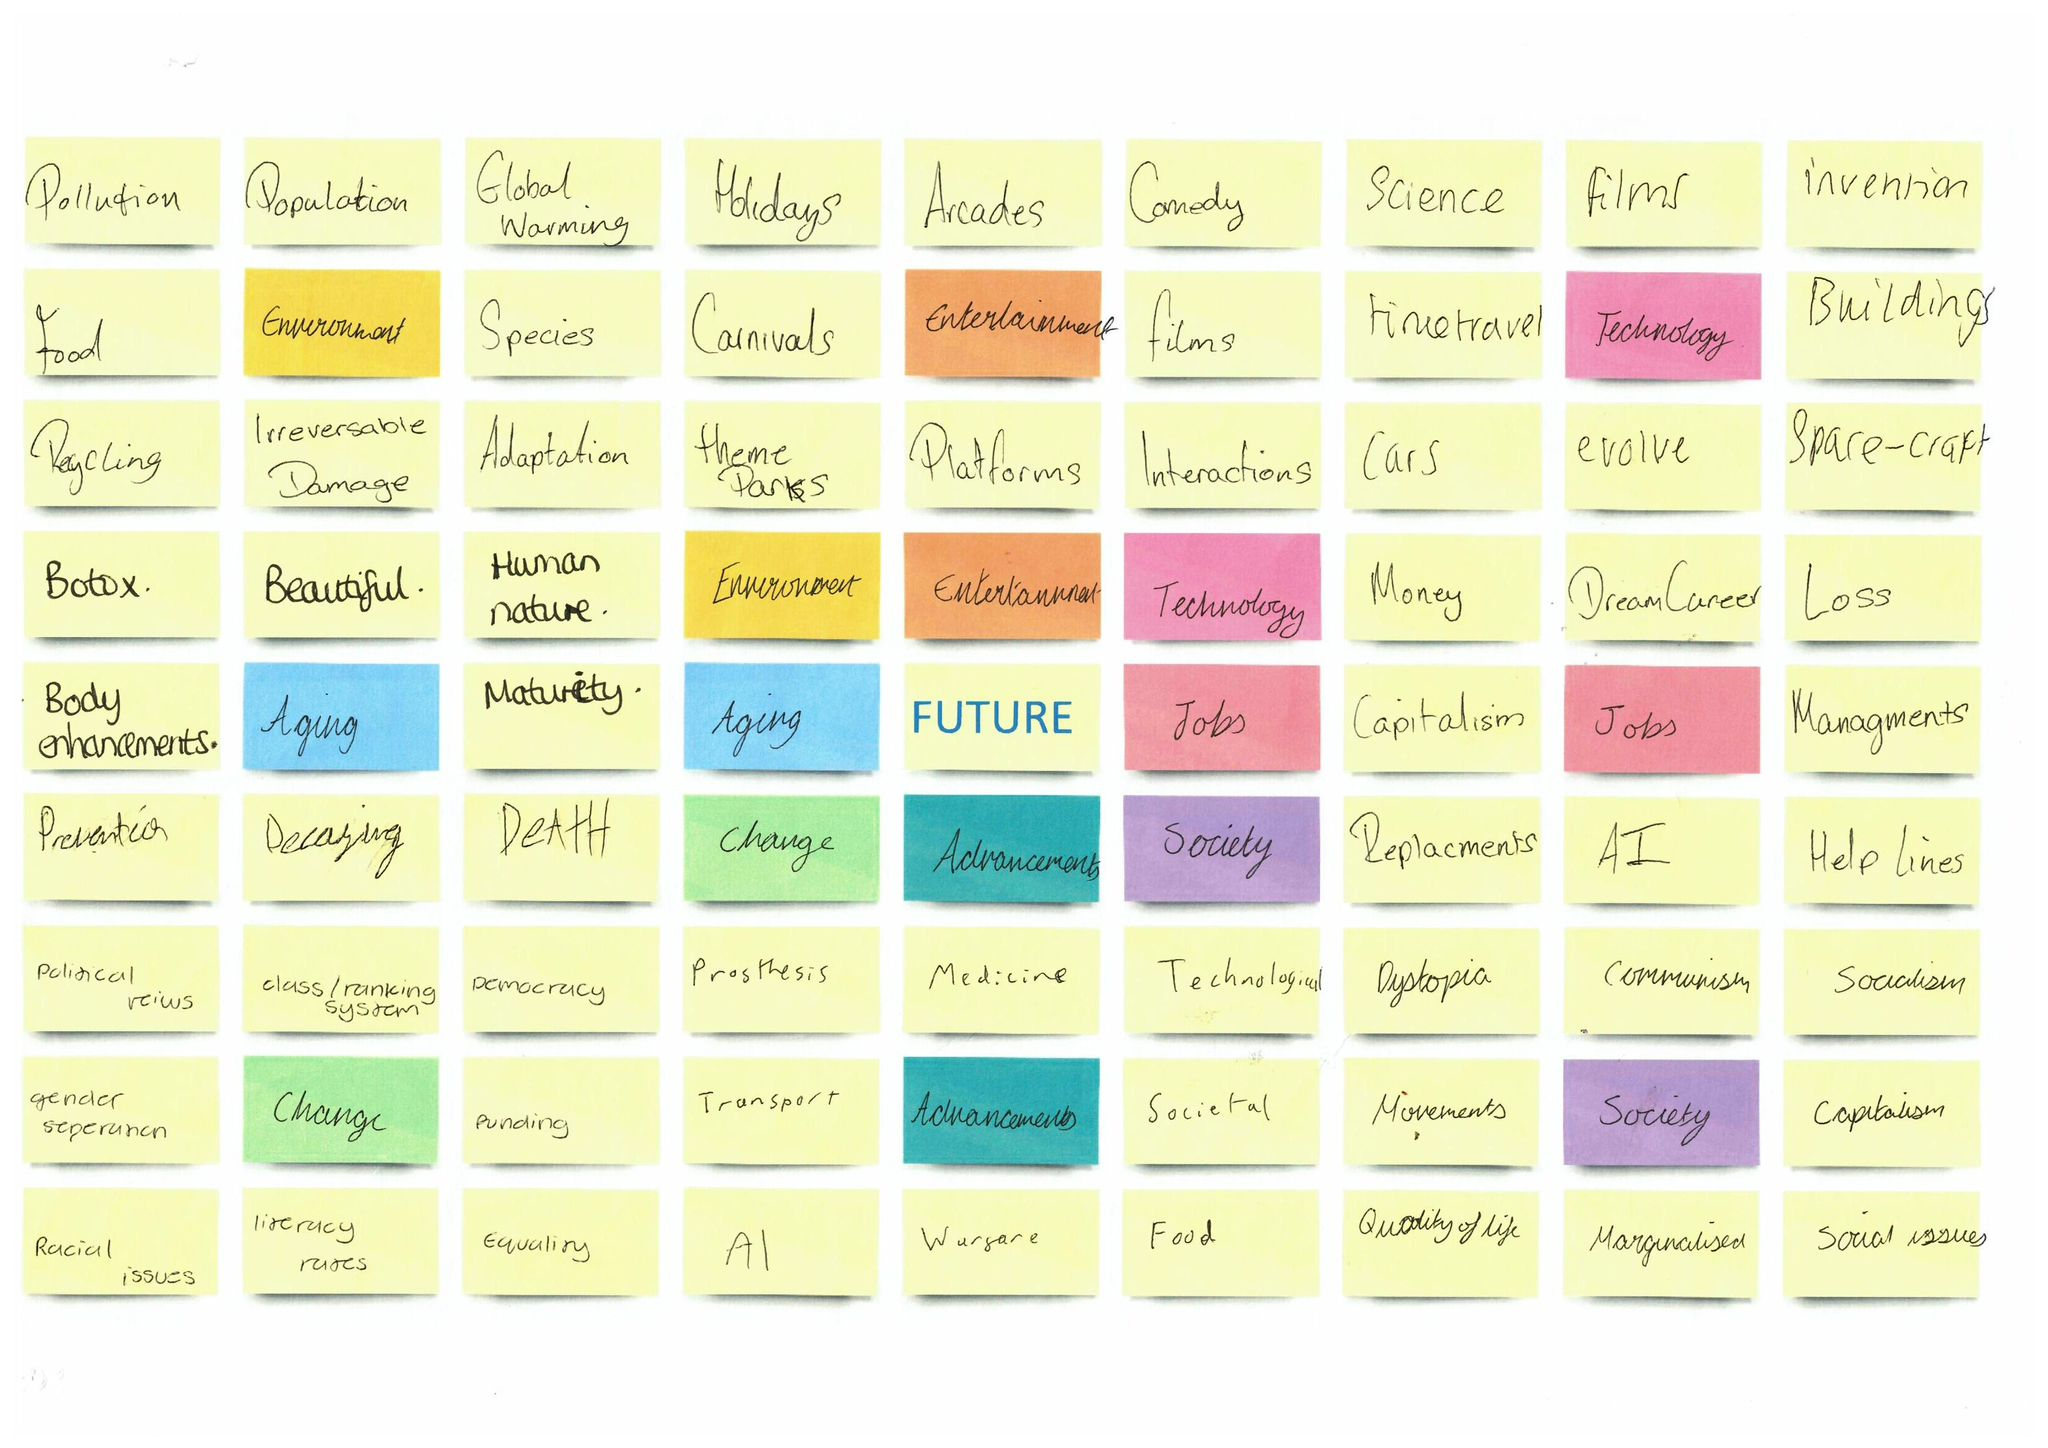 Pollution
Population
Global
Warming
Holidays
Arcades
Comedy
Science
films
invention
Food
Environment
Species
Carnivals
Entertainment
films
timetravel
Technology
Buildings
Recycling
Irreversable
Damage
Adaptation
theme
Parks
Platforms
Interactions
Cars
evolve
Space-craft
Botox.
Beautiful.
Human
nature.
Environment
Entertainment
Technology
Money
Dream Career
Loss
Body
enhancements.
Aging
Maturity.
Aging
FUTURE
Jobs
Capitalism
Jobs
Managments
Prevention
Decaying
DEATH
Change
Advancements
Society
Replacments
AI
Help lines
political
veiws
class/ranking
system
Democracy
Prosthesis
Medicine
Technological
Dystopia
Communism
Socialism
gender
seperation
Change
Funding
Transport
Advancements
Societal
Movements
Society
Capitalism
Racial
issues
literacy
rates
Equality
AI
Warfare
Food
Quality of life
Marginalised
Social issues